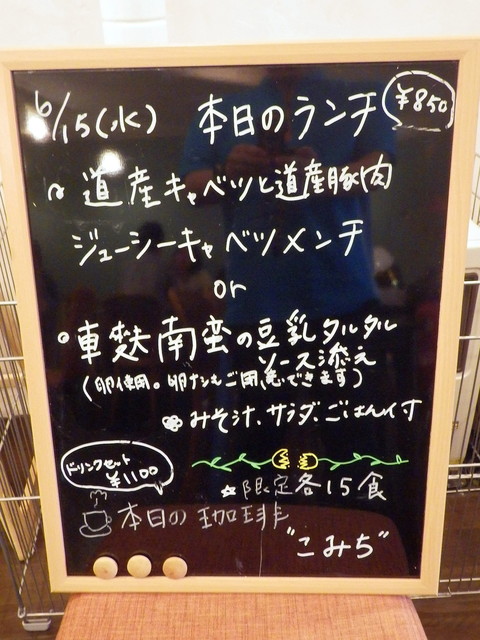 6/15(水) 本日のランチ ¥850
道産キャベツと道産豚肉
ジューシーキャベツメンチ
or
車麩南蛮の豆乳タルタル
ソース添え
(卵使用。卵ナシもご用意できます)
みそ汁、サラダ、ごはん付
ドリンクセット
¥1100
☆限定各15食
本日の珈琲
"こみち"